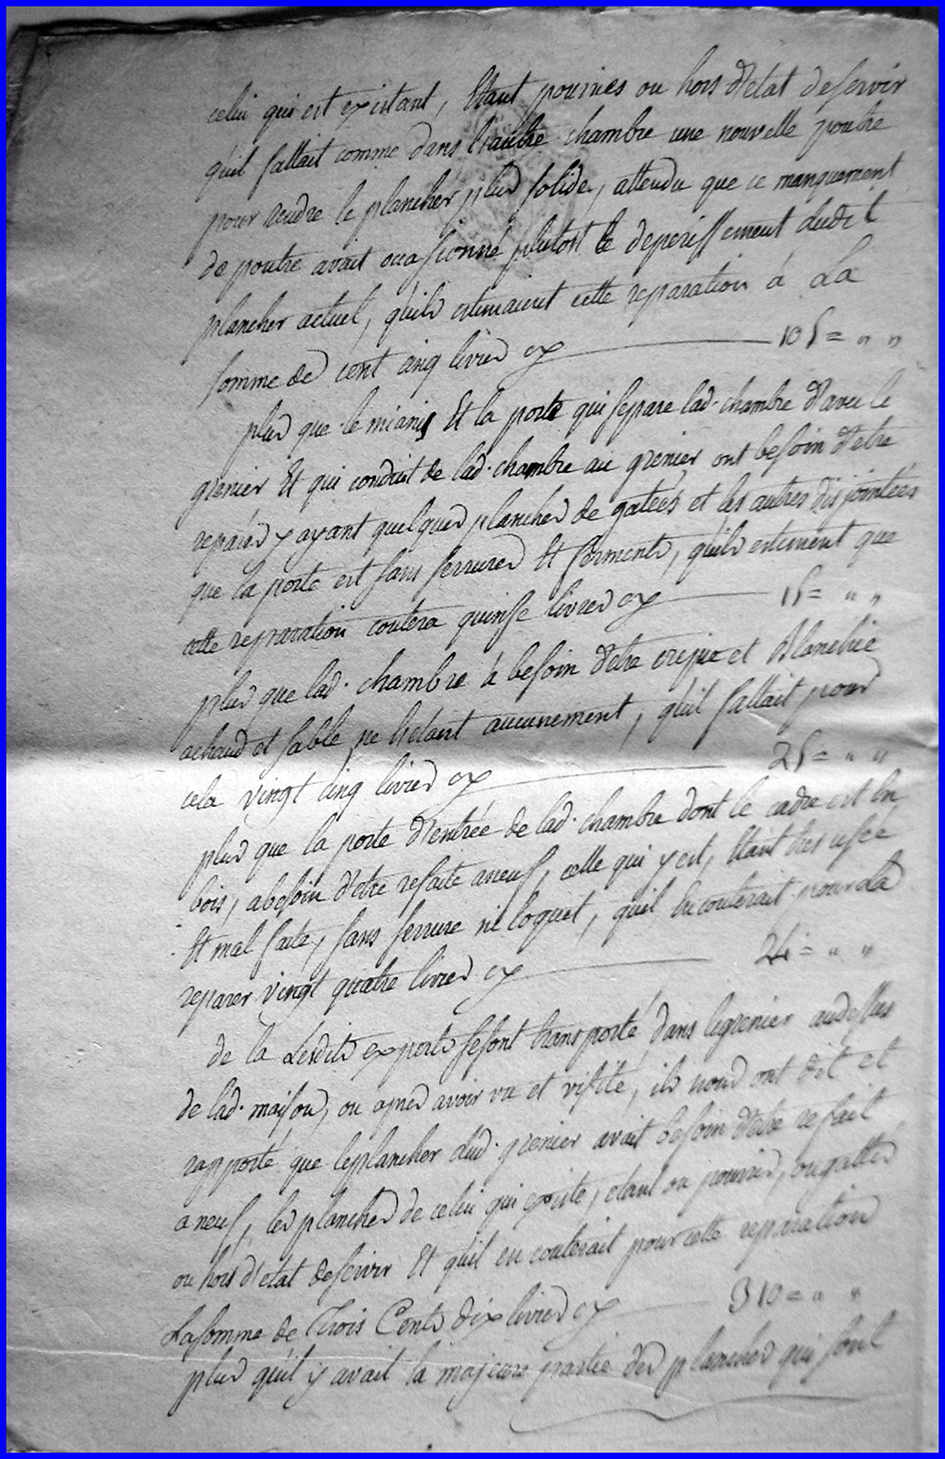 celui qui est existant, Etant pouries ou hors d'etat deservir
quil fallait comme dans l'autre chambre une nouvelle poutre
pour rendre le plancher plus solide, attendu que ce manquement
de poutre avait occasionné plutost le deperissement dudit
plancher actuel, quils estimaient cette reparation á La
somme de cent cinq livres cy 105 = " "
plus que le mianis Et la porte qui separe lad. chambre d'avec le
grenier Et qui conduit de lad. chambre au grenier ont besoin d'etre
reparés y ayant quelques plancher de gatées et les autres disjointées
que la porte est sans serrures Et ferments, quils estiment que
cette reparation coutera quinse livres cy 15 = " "
plus que lad. chambre à besoin d'etre crepie et Blanchie
achaud et sable ne l'etant aucunement, qu'il fallait pour
cela vingt cinq livres cy 25 = " "
plus que la porte d'entrée de lad. chambre dont le cadre est en
bois, abesoin d'etre refaite aneuf, celle qui y est, Etant tres usée
Et mal faite, sans serrure ni loquet, quil en couterait pour La
reparer vingt quatre livres cy 24 = " "
de la Lesdits experts sesont transporté dans legrenier audessus
de lad. maison, ou apres avoir vu et visité, ils nous ont dit et
rapporté que leplancher dud. grenier avait besoin d'etre refait
a neuf, les planches de celui qui existe, etant ou pouries, ou gattes
ou hors d'etat deservir Et quil en couterait pour cette reparation
Lasomme de Trois Cents dix livres cy 310 = " "
plus qu'il y avait la majeure partie des planches qui sont